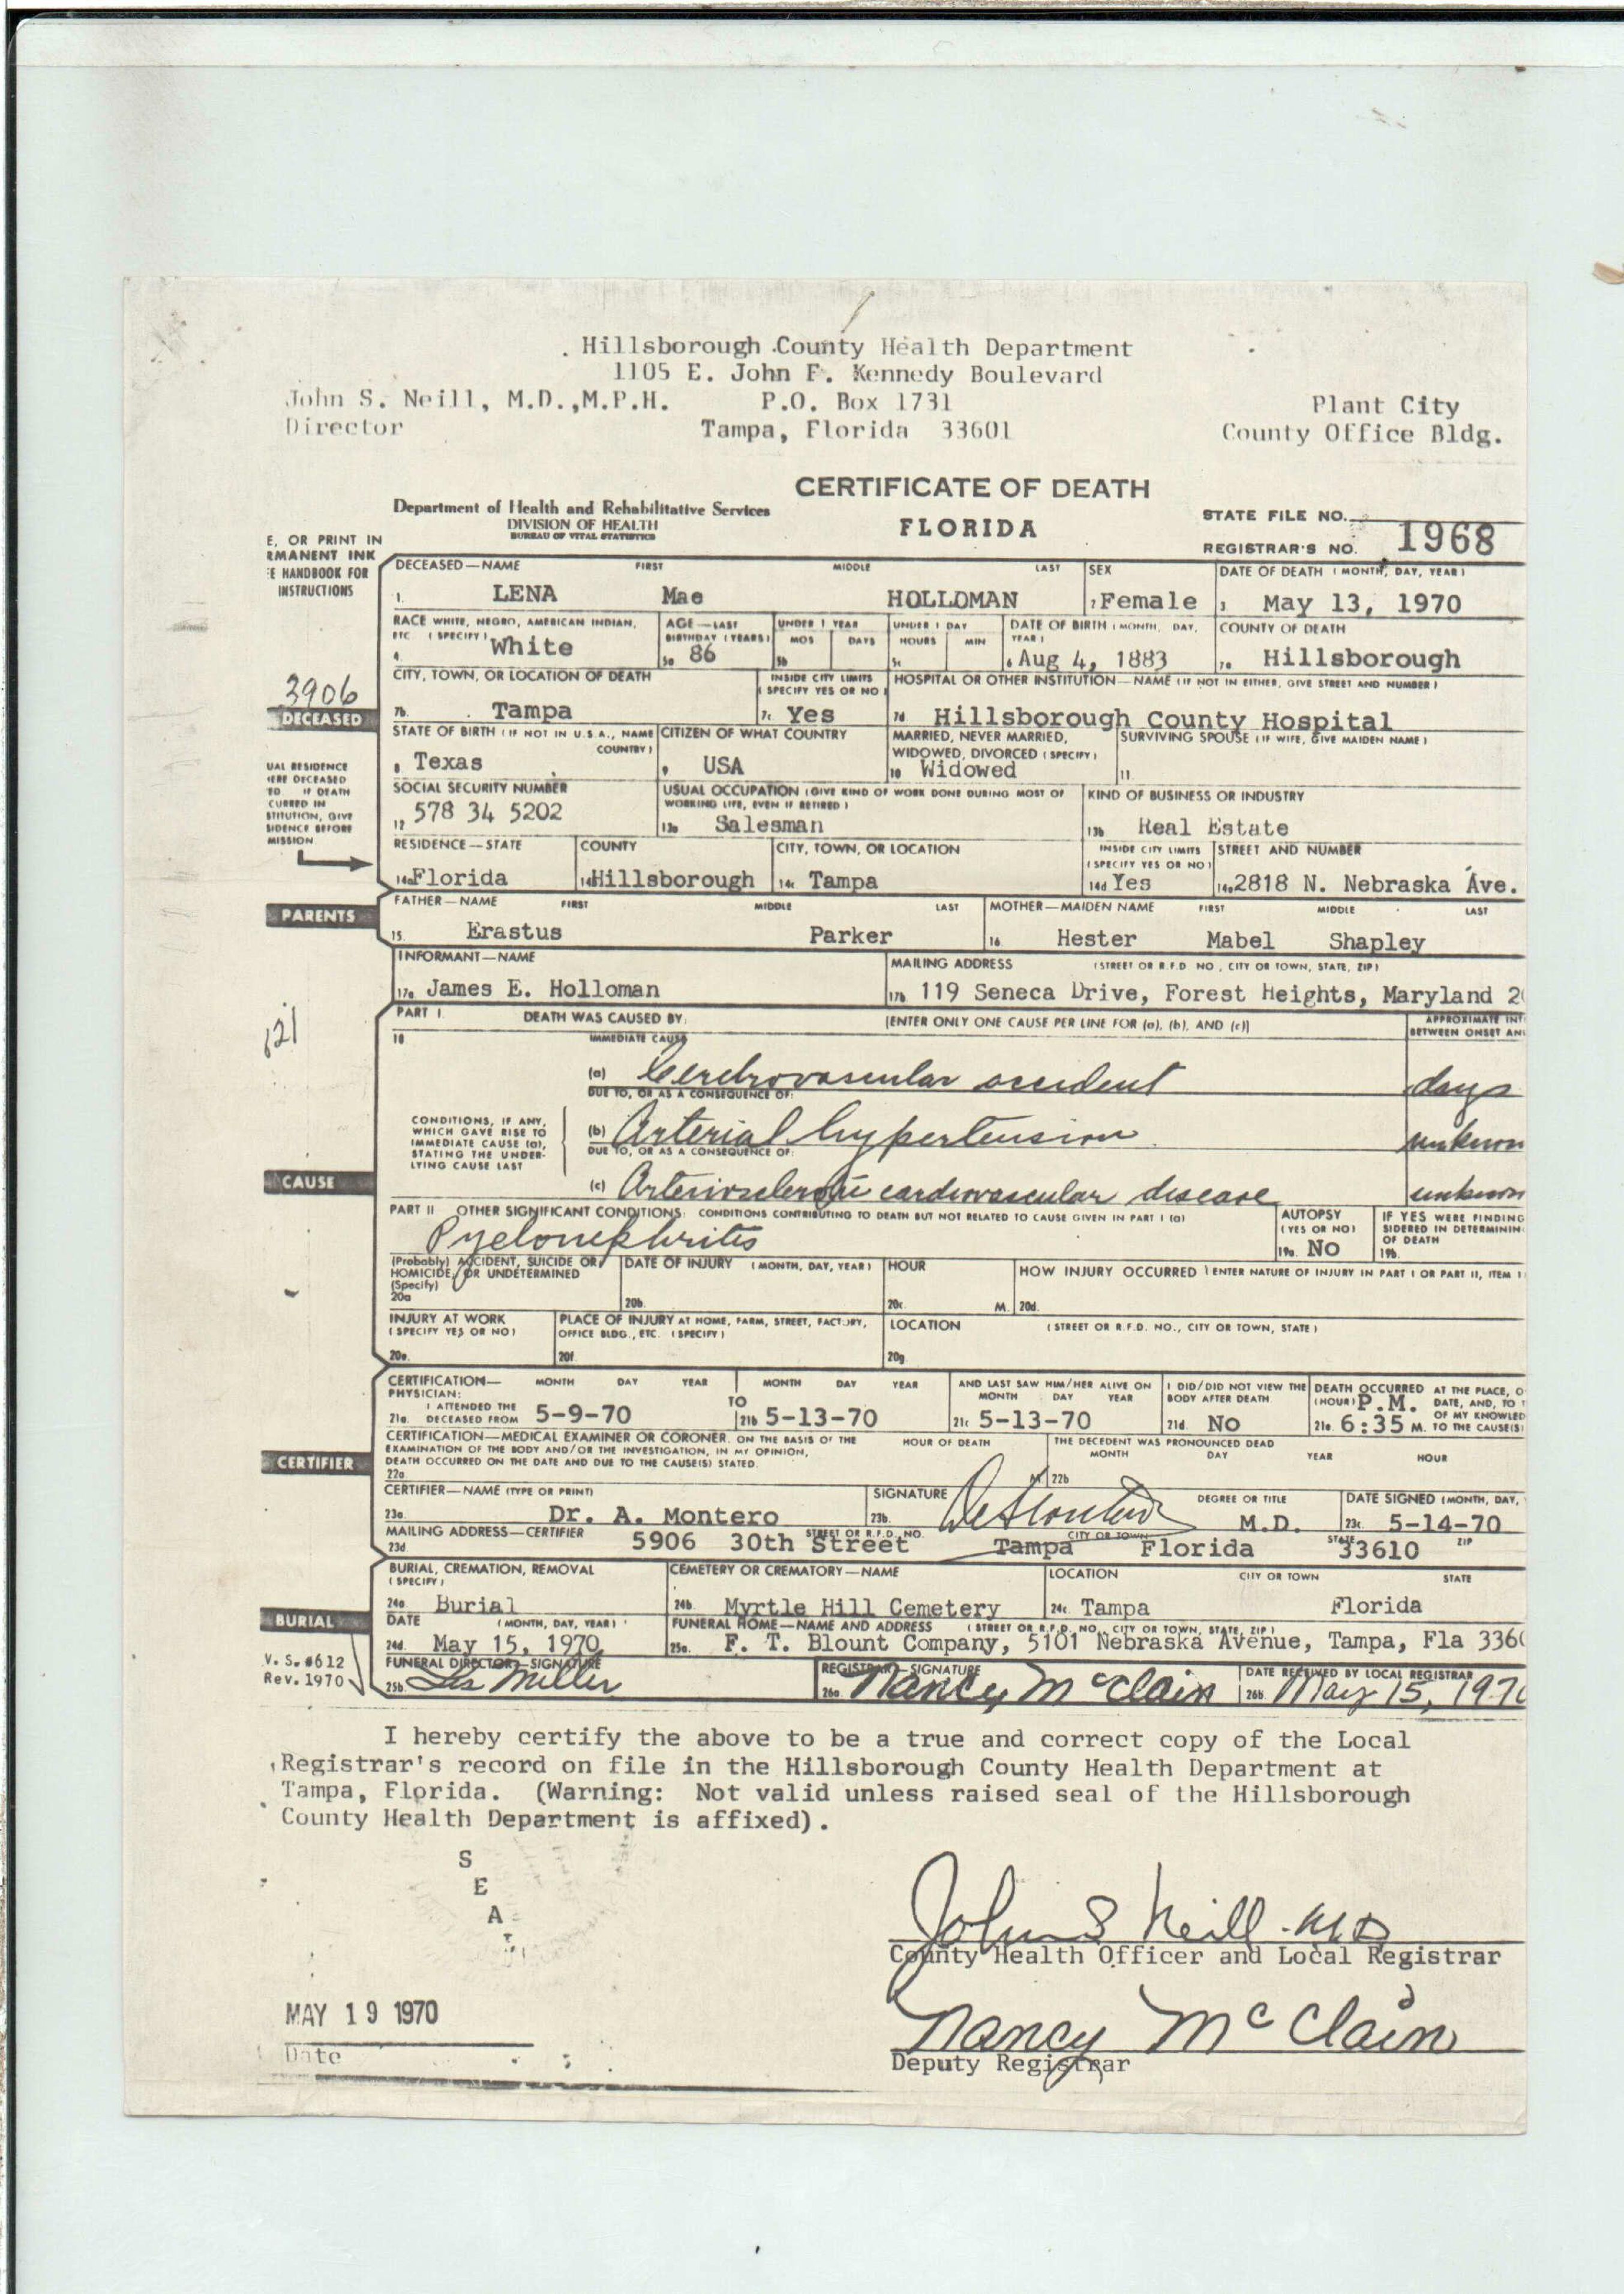 Hillsborough County Health Department
1105 E. John F. Kennedy Boulevard
John S. Neill, M.D.,M.P.H. P.O. Box 1731 Plant City
Director Tampa, Florida 33601 County Office Bldg.
CERTIFICATE OF DEATH
Department of Health and Rehabilitative Services
DIVISION OF HEALTH
BUREAU OF VITAL STATISTICS
FLORIDA
STATE FILE NO.
REGISTRAR'S NO. 1968
E, OR PRINT IN
RMANENT INK
E HANDBOOK FOR
INSTRUCTIONS
DECEASED—NAME FIRST MIDDLE LAST SEX DATE OF DEATH (MONTH, DAY, YEAR)
1. LENA Mae HOLLOMAN 2 Female 3 May 13, 1970
RACE WHITE, NEGRO, AMERICAN INDIAN, ETC (SPECIFY) AGE—LAST BIRTHDAY (YEARS) UNDER 1 YEAR MOS DAYS UNDER 1 DAY HOURS MIN DATE OF BIRTH (MONTH, DAY, YEAR) COUNTY OF DEATH
4. White 5a 86 5b 5c 6 Aug 4, 1883 7a Hillsborough
3906
DECEASED
CITY, TOWN, OR LOCATION OF DEATH INSIDE CITY LIMITS (SPECIFY YES OR NO) HOSPITAL OR OTHER INSTITUTION—NAME (IF NOT IN EITHER, GIVE STREET AND NUMBER)
7b. Tampa 7c Yes 7d Hillsborough County Hospital
STATE OF BIRTH (IF NOT IN U.S.A., NAME COUNTRY) CITIZEN OF WHAT COUNTRY MARRIED, NEVER MARRIED, WIDOWED, DIVORCED (SPECIFY) SURVIVING SPOUSE (IF WIFE, GIVE MAIDEN NAME)
8 Texas 9 USA 10 Widowed 11.
UAL RESIDENCE
HERE DECEASED
ED. IF DEATH
CURRED IN
STITUTION, GIVE
SIDENCE BEFORE
MISSION
SOCIAL SECURITY NUMBER USUAL OCCUPATION (GIVE KIND OF WORK DONE DURING MOST OF WORKING LIFE, EVEN IF RETIRED) KIND OF BUSINESS OR INDUSTRY
12 578 34 5202 13a Salesman 13b Real Estate
RESIDENCE—STATE COUNTY CITY, TOWN, OR LOCATION INSIDE CITY LIMITS (SPECIFY YES OR NO) STREET AND NUMBER
14a Florida 14b Hillsborough 14c Tampa 14d Yes 14e 2818 N. Nebraska Ave.
PARENTS
FATHER—NAME FIRST MIDDLE LAST MOTHER—MAIDEN NAME FIRST MIDDLE LAST
15. Erastus Parker 16 Hester Mabel Shapley
INFORMANT—NAME MAILING ADDRESS (STREET OR R.F.D NO, CITY OR TOWN, STATE, ZIP)
17a James E. Holloman 17b 119 Seneca Drive, Forest Heights, Maryland 20
PART I. DEATH WAS CAUSED BY: [ENTER ONLY ONE CAUSE PER LINE FOR (a), (b), AND (c)] APPROXIMATE INT
BETWEEN ONSET AN
18 IMMEDIATE CAUSE
(a) Cerebrovascular accident days
DUE TO, OR AS A CONSEQUENCE OF:
CONDITIONS, IF ANY,
WHICH GAVE RISE TO
IMMEDIATE CAUSE (a),
STATING THE UNDER-
LYING CAUSE LAST
(b) Arterial hypertension unknown
DUE TO, OR AS A CONSEQUENCE OF:
CAUSE
(c) Arteriosclerotic cardiovascular disease unknown
PART II OTHER SIGNIFICANT CONDITIONS: CONDITIONS CONTRIBUTING TO DEATH BUT NOT RELATED TO CAUSE GIVEN IN PART I (a) AUTOPSY (YES OR NO) IF YES WERE FINDING
SIDERED IN DETERMININ
OF DEATH
Pyelonephritis 19a. No 19b.
(Probably) ACCIDENT, SUICIDE OR HOMICIDE, OR UNDETERMINED (Specify) DATE OF INJURY (MONTH, DAY, YEAR) HOUR HOW INJURY OCCURRED (ENTER NATURE OF INJURY IN PART I OR PART II, ITEM 1
20a 20b. 20c. M. 20d.
INJURY AT WORK (SPECIFY YES OR NO) PLACE OF INJURY AT HOME, FARM, STREET, FACTORY, OFFICE BLDG., ETC. (SPECIFY) LOCATION (STREET OR R.F.D. NO., CITY OR TOWN, STATE)
20e. 20f. 20g
CERTIFICATION— MONTH DAY YEAR MONTH DAY YEAR AND LAST SAW HIM/HER ALIVE ON MONTH DAY YEAR I DID/DID NOT VIEW THE BODY AFTER DEATH DEATH OCCURRED AT THE PLACE, O
PHYSICIAN: TO (HOUR) P.M. DATE, AND, TO
I ATTENDED THE OF MY KNOWLED
21a. DECEASED FROM 5-9-70 21b 5-13-70 21c 5-13-70 21d. No 21e. 6:35 M. TO THE CAUSE(S)
CERTIFIER
CERTIFICATION—MEDICAL EXAMINER OR CORONER. ON THE BASIS OF THE EXAMINATION OF THE BODY AND/OR THE INVESTIGATION, IN MY OPINION, DEATH OCCURRED ON THE DATE AND DUE TO THE CAUSE(S) STATED. HOUR OF DEATH THE DECEDENT WAS PRONOUNCED DEAD MONTH DAY YEAR HOUR
22a. M 22b
CERTIFIER—NAME (TYPE OR PRINT) SIGNATURE DEGREE OR TITLE DATE SIGNED (MONTH, DAY,
23a. Dr. A. Montero 23b. M.D. 23c. 5-14-70
MAILING ADDRESS—CERTIFIER STREET OR R.F.D. NO. CITY OR TOWN STATE ZIP
23d 5906 30th Street Tampa Florida 33610
BURIAL
BURIAL, CREMATION, REMOVAL (SPECIFY) CEMETERY OR CREMATORY—NAME LOCATION CITY OR TOWN STATE
24a Burial 24b. Myrtle Hill Cemetery 24c Tampa Florida
DATE (MONTH, DAY, YEAR) FUNERAL HOME—NAME AND ADDRESS (STREET OR R.F.D. NO., CITY OR TOWN, STATE, ZIP)
24d May 15, 1970 25a. F. T. Blount Company, 5101 Nebraska Avenue, Tampa, Fla 3360
V. S. #612
Rev. 1970
FUNERAL DIRECTOR—SIGNATURE REGISTRAR—SIGNATURE DATE RECEIVED BY LOCAL REGISTRAR
25b Miller 26a Nancy McClain 26b May 15, 1970
I hereby certify the above to be a true and correct copy of the Local
Registrar's record on file in the Hillsborough County Health Department at
Tampa, Florida. (Warning: Not valid unless raised seal of the Hillsborough
County Health Department is affixed).
S
E
A
L
John S Neill MD
County Health Officer and Local Registrar
MAY 19 1970
Date
Nancy McClain
Deputy Registrar